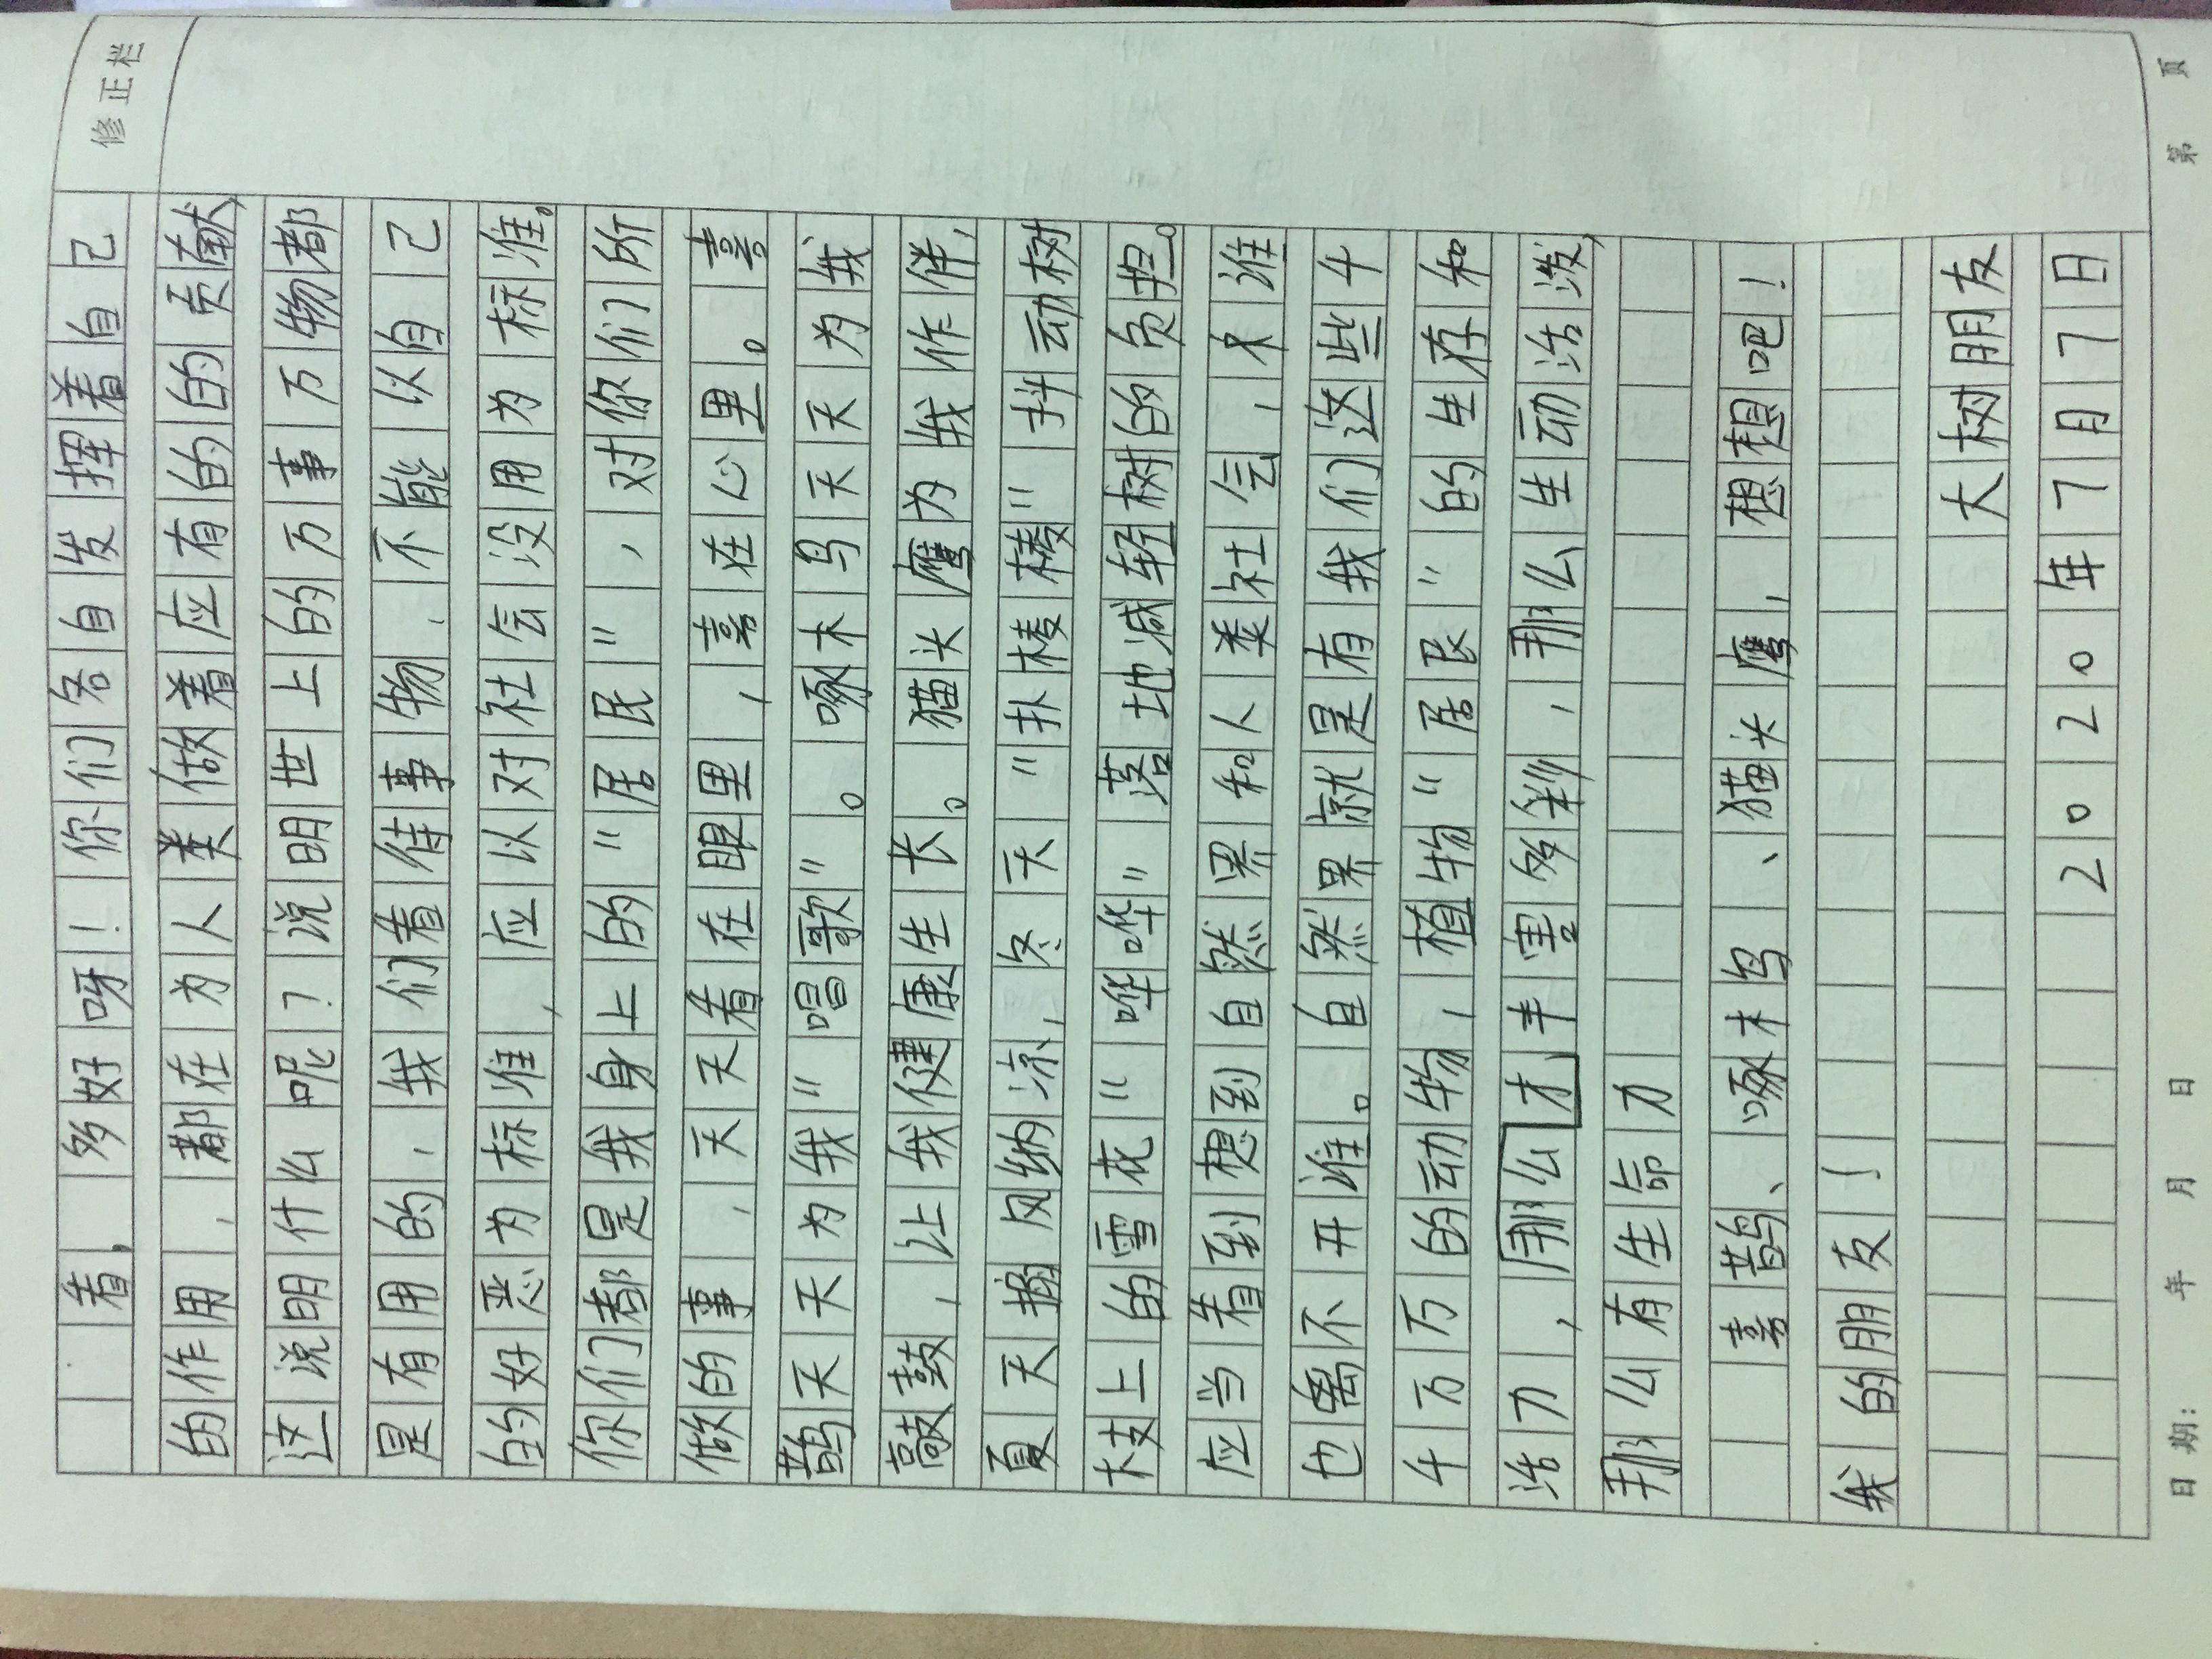 修正栏
看，多好呀！你们各自发挥着自己
的作用，都在为人类做着应有的的贡献，
这说明什么呢？说明世上的万事万物都
是有用的，我们看待事物，不能以自己
的好恶为标准，应以对社会没用为标准。
你们都是我身上的"居民"，对你们所
做的事，天天看在眼里，喜在心里。喜
鹊天天为我"唱歌"。啄木鸟天天为我
敲鼓，让我健康生长。猫头鹰为我作伴，
夏天搧风纳凉，冬天"扑棱棱"抖动树
枝上的雪花"哗哗"落地减轻树的负担。
应当看到想到自然界和人类社会，不谁
也离不开谁。自然界就是有我们这些千
千万万的动物，植物"居民"的生存和
活力，那么才丰富多彩，那么生动活泼，
那么有生命力
喜鹊、啄木鸟、猫头鹰，想想吧！
我的朋友！
大树朋友
2020年7月7日
日期： 年 月 日 第 页